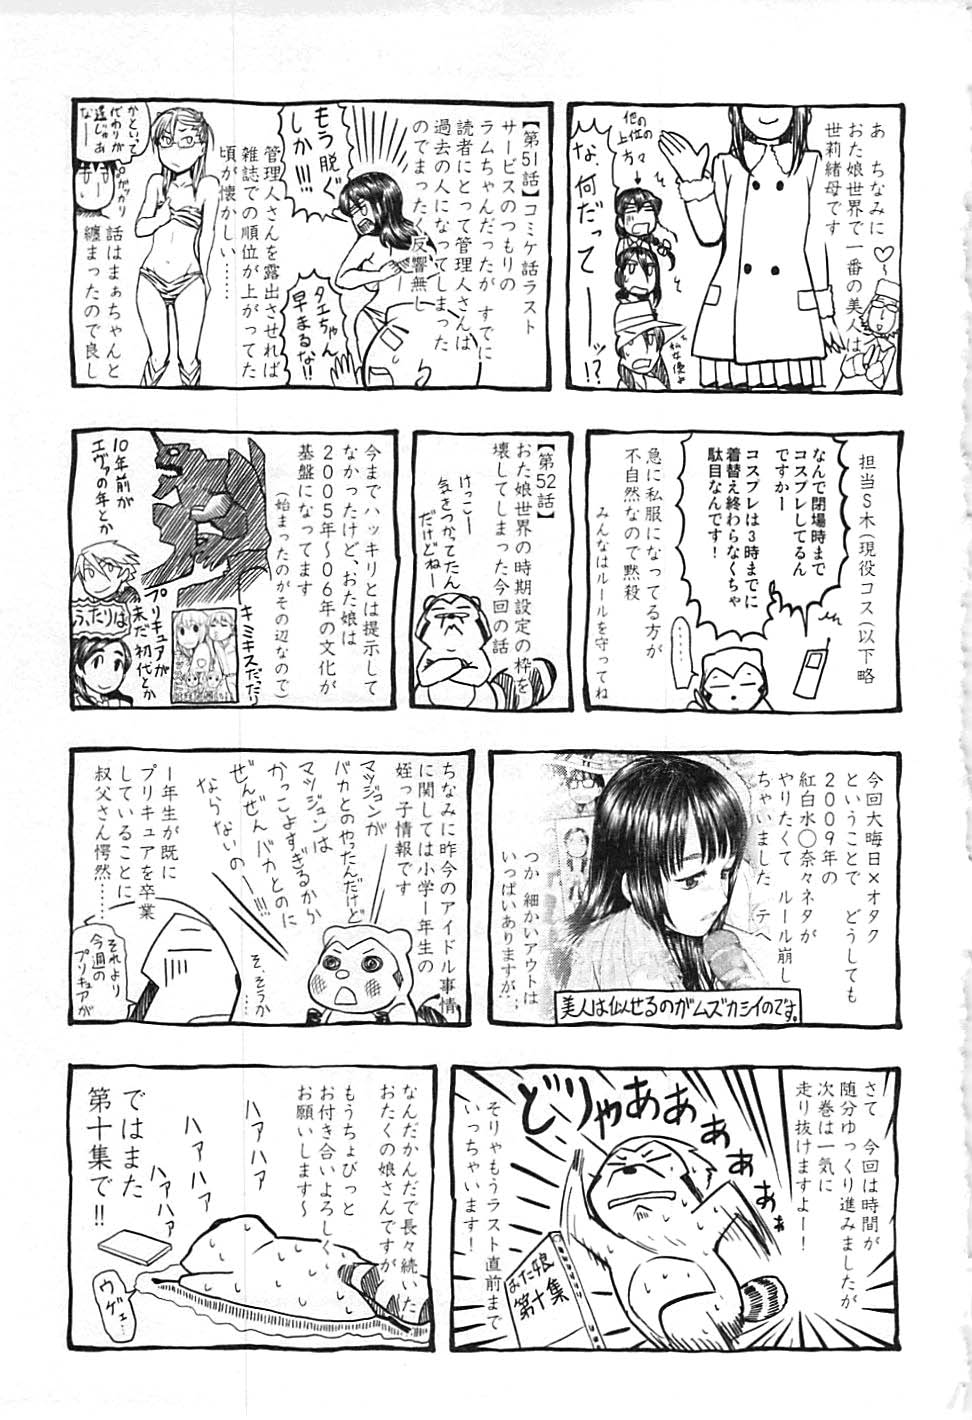 あ　ちなみに
おた娘世界で一番の美人は
世莉緒母です
他の
上位の
方々
な、何だって
ーーーッ!?
【第51話】コミケ話ラスト
サービスのつもりの
ラムちゃんだったが　すでに
読者にとって管理人さんは
過去の人になってしまった
のでまったく反響無し
もう脱ぐ
しか!!!
タエちゃん
早まるな!!
管理人さんを露出させれば
雑誌での順位が上がってた
頃が懐かしい……
かといって
代わりが
遥じゃあ
なー
がっかり
話はまぁちゃんと
纏まったので良し
担当S木(現役コス(以下略
なんで閉場時まで
コスプレしてるん
ですかー
コスプレは3時までに
着替え終わらなくちゃ
駄目なんです!
急に私服になってる方が
不自然なので黙殺
みんなはルールを守ってね
……
【第52話】
おた娘世界の時期設定の枠を
壊してしまった今回の話
けっこー
気をつかってたん
だけどねー
今までハッキリとは提示して
なかったけど、おた娘は
2005年〜06年の文化が
基盤になってます
(始まったのがその辺なので)
10年前が
エヴァの年とか
キミキスだったり
プリキュアが
未だ初代とか
ふたりは
今回大晦日×オタク
ということで　どうしても
2009年の
紅白水〇奈々ネタが
やりたくて　ルール崩し
ちゃいました　テヘ
つか　細かいアウトは
いっぱいありますが…
美人は似せるのがムズカシイのです。
ちなみに昨今のアイドル事情
に関しては小学1年生の
姪っ子情報です
マツジュンが
バカとのやったんだけど
マツジュンは
かっこよすぎるから
ぜんぜんバカとのに
ならないの—!!
そ、そうか
1年生が既に
プリキュアを卒業
していることに
叔父さん愕然……
それより
今週の
プリキュアが
さて　今回は時間が
随分ゆっくり進みましたが
次巻は一気に
走り抜けますよー!
どりゃああああぁぁ
そりゃもうラスト直前まで
いっちゃいます!
おた娘
第十集
なんだかんだで長々続いた
おたくの娘さんですが
もうちょびっと
お付き合いよろしく
お願いします〜
ハァハァ
ハァハァ
ハァハァ
ウゲェ…
ではまた
第十集で!!